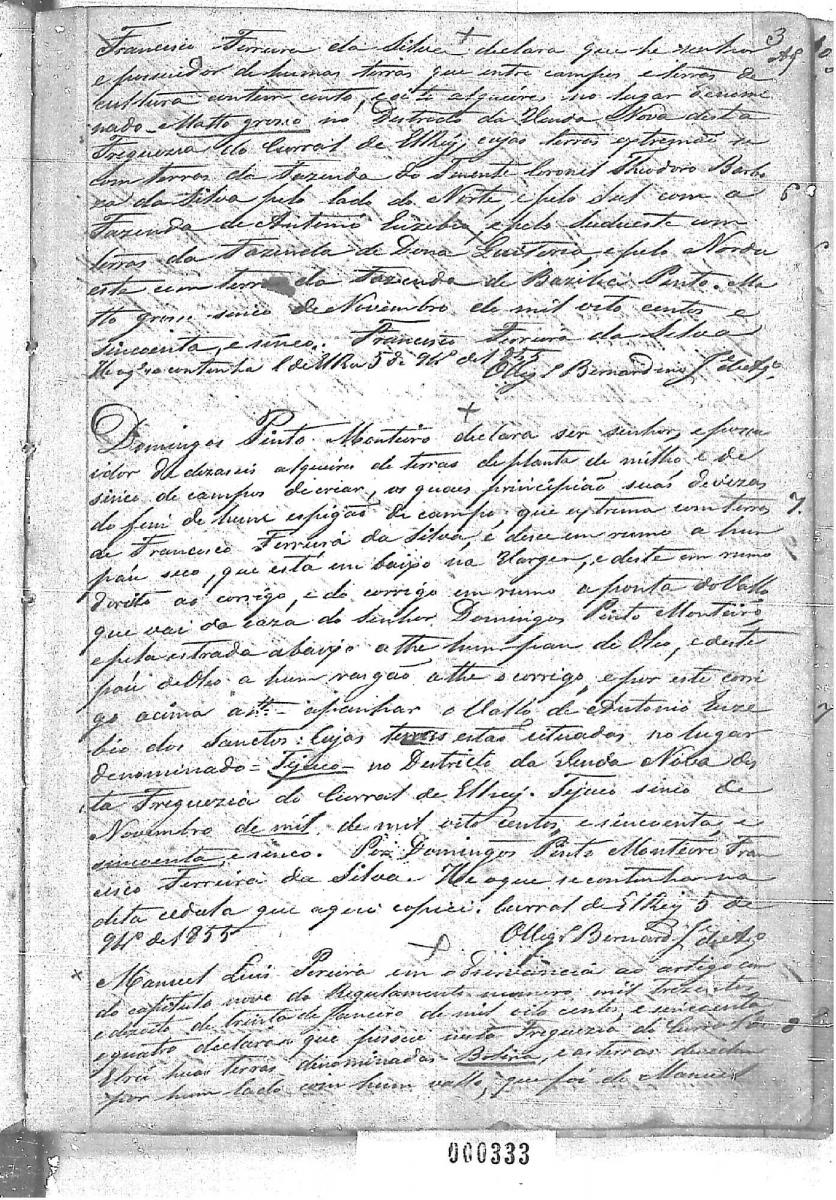 3
Francisco Ferreira da Silva declara que he senhor
e possuidor de humas terras que entre campos e terras de
cultura contem cento, e oito alqueires no lugar denomi
nado Matto grosso no Districto da Venda Nova desta
Freguezia do Curral de ElRey, cujas terras extremão se
com terras da Fazenda do Tenente Coronel Theodoro Barbo
za da Silva pelo lado do Norte e pelo Sul com a
Fazenda de Antonio Euzebio, e pelo Sudueste com
terras da Fazenda de Dona Quiteria, e pelo Nordu
este com terras da Fazenda de Bazilio Pinto. Ma
tto grosso sinco de Novembro de mil oito centos e
sincoenta, e sinco. Francisco Ferreira da Silva
He o q̃ se continha C. de ElRei 5 de 9br.º de 1855 O Vigr.º Bernardino
Domingos Pinto Monteiro declara ser senhor, e possu
idor de dezaseis alqueires de terras de planta de milho e de
sinco de campos de criar, os quaes principião suas devizas
do fim de hum espigão de campo, que extrema com terras
de Francisco Ferreira da Silva, e desce em rumo a hum
páu seco, que está em baixo na Vargem, e deste em rumo
direito ao corrigo, e do corrigo em rumo a ponta do Vallo
que vai da caza do Senhor Domingos Pinto Monteiro,
e pela estrada abaixo athe hum pau de Oleo, e deste
páu de Oleo a hum rasgão athe o corrigo, e por este corri
go acima até apanhar o Vallo de Antonio Euze
bio dos Sanctos: Cujas terras estão cituadas no lugar
denominado - Tijuco - no Districto da Venda Nova des
ta Freguezia do Curral de ElRey. Tijuco sinco de
Novembro de mil de mil oito centos, e sincoenta, e
sincoenta, e sinco. Por Domingos Pinto Monteiro Fran
cisco Ferreira da Silva. He o que se continha na
dita cedula que aqui copiei. Curral de ElRey 5 de
9br.º de 1855 O Vigr.º Bernard.
7.
Manuel Luis Pereira em observancia ao artigo
do capitulo nove do Regulamento numero mil trezentos
e dezoito de trinta de Janeiro de mil oito centos, e sincoenta
e quatro declara que possue nesta Freguezia do Curral de
ElRei huas terras denominadas - Bolina, e as terras devidem
por hum lado com hum vallo, que foi de Manuel
8
000333